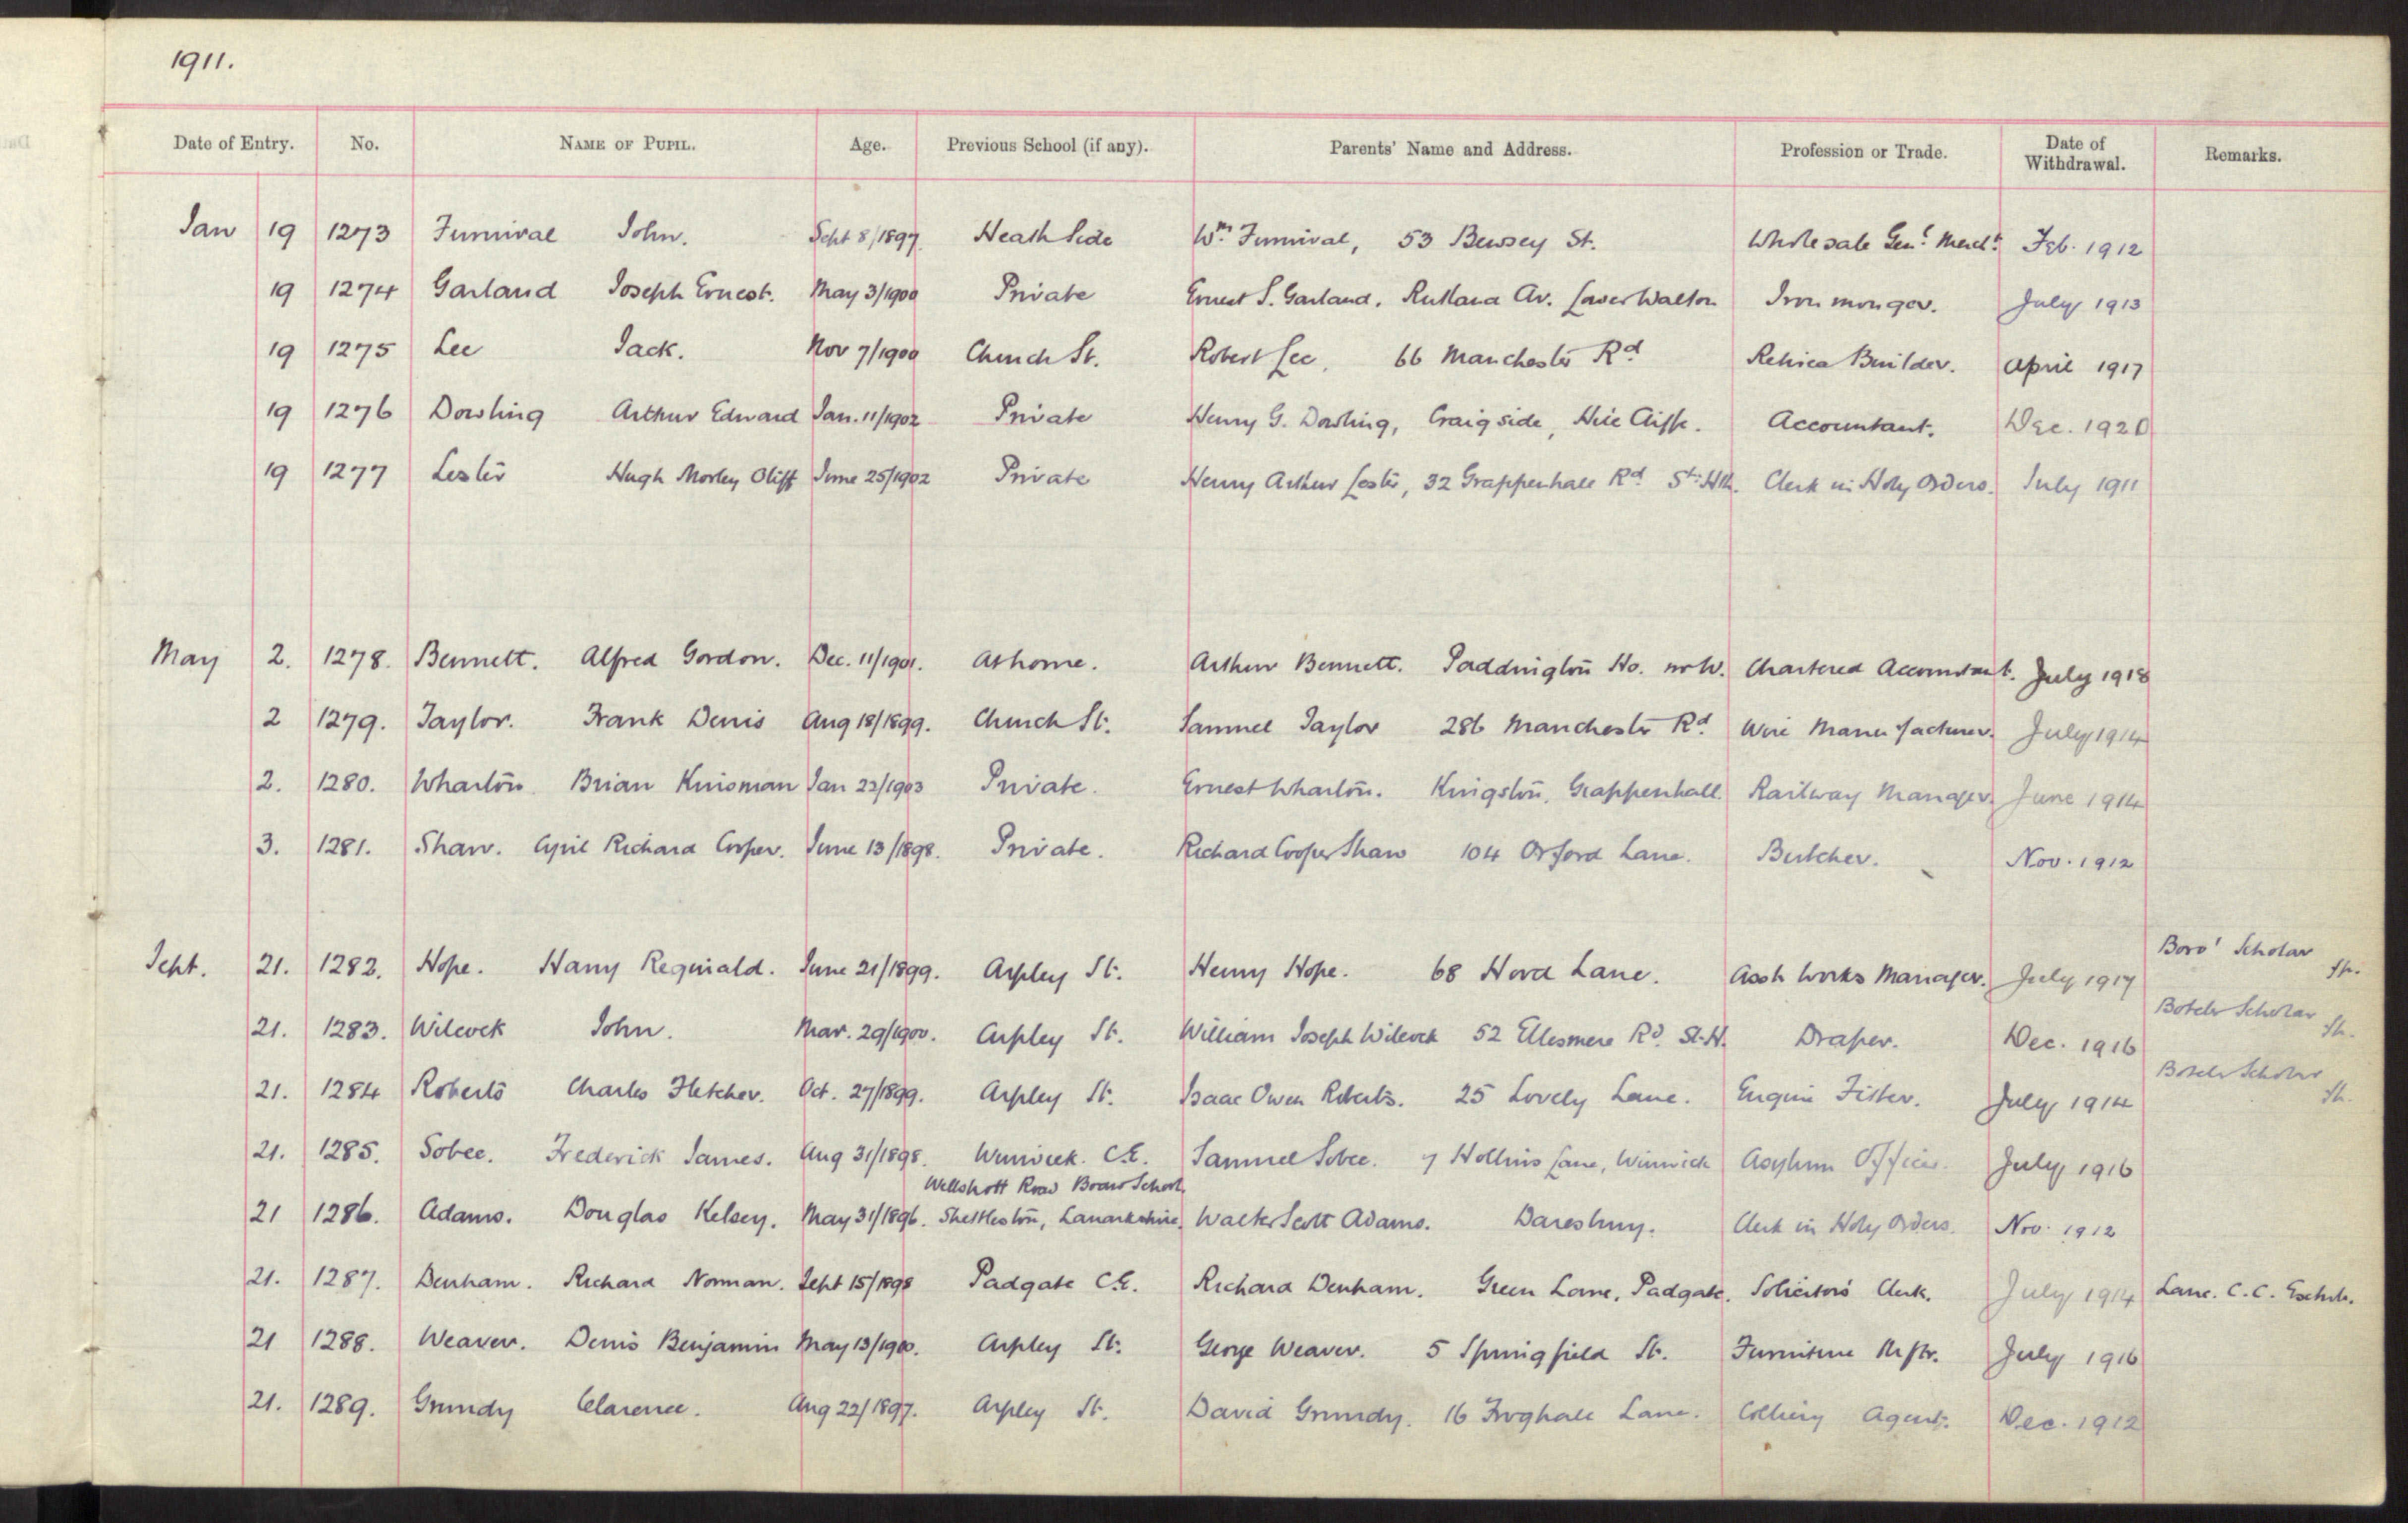 1911.
Date of Entry. No. NAME OF PUPIL. Age. Previous School (if any). Parents' Name and Address. Profession or Trade. Date of Withdrawal. Remarks.
Jan 19 1273 Furnival John. Sept 8/1897. Heath Side Wm Furnival, 53 Bewsey St. Wholesale Genl Mercht. Feb. 1912
19 1274 Garland Joseph Ernest. May 3/1900 Private Ernest S. Garland. Rutland Av. Lower Walton Ironmonger. July 1913
19 1275 Lee Jack. Nov 7/1900 Church St. Robert Lee, 66 Manchester Rd Builder. April 1917
19 1276 Dowling Arthur Edward Jan. 11/1902 Private Henry G. Dowling, Craigside, Hill Cliffe. Accountant. Dec. 1920
19 1277 Lester Hugh Morley Oliff June 25/1902 Private Henry Arthur Lester, 32 Grappenhall Rd St: Hth. Clerk in Holy Orders. July 1911
May 2. 1278. Bennett. Alfred Gordon. Dec. 11/1901. At home. Arthur Bennett. Paddington Ho. nr W. Chartered Accountant. July 1918
2 1279. Taylor. Frank Denis Aug 18/1899. Church St. Samuel Taylor 286 Manchester Rd. Wire Manufacturer. July 1914
2. 1280. Wharton. Brian Kinsman Jan 22/1903 Private. Ernest Wharton. Kingston, Grappenhall. Railway Manager. June 1914
3. 1281. Shaw. Cyril Richard Cooper. June 13/1898. Private. Richard Cooper Shaw 104 Orford Lane. Butcher. Nov. 1912
Boro' Scholar
Sept. 21. 1282. Hope. Harry Reginald. June 21/1899. Arpley St. Henry Hope. 68 Hord Lane. Asst Works Manager. July 1917
Boteler Scholar
21. 1283. Wilcock John. Mar. 29/1900. Arpley St. William Joseph Wilcock 52 Ellesmere Rd. St. H. Draper. Dec. 1916
Boteler Scholar
21. 1284 Roberts Charles Fletcher. Oct. 27/1899. Arpley St. Isaac Owen Roberts. 25 Lovely Lane. Engine Fitter. July 1914
21. 1285. Sobee. Frederick James. Aug 31/1898. Winwick. C.E. Samuel Sobee. 7 Hollins Lane, Winwick Asylum Officer. July 1916
Wellshott Road Board School,
21 1286. Adams. Douglas Kelsey. May 31/1896. Shettleston, Lanarkshire. Walter Scott Adams. Daresbury. Clerk in Holy Orders. Nov. 1912
21. 1287. Denham. Richard Norman. Sept 15/1898 Padgate C.E. Richard Denham. Green Lane, Padgate. Solicitors Clerk. July 1914 Lanc. C.C.
21 1288. Weaver. Denis Benjamin May 13/1900. Arpley St. George Weaver. 5 Springfield St. Furniture Mftr. July 1916
21. 1289. Grundy Clarence. Aug 22/1897. Arpley St. David Grundy. 16 Froghall Lane. Colliery Agent. Dec. 1912